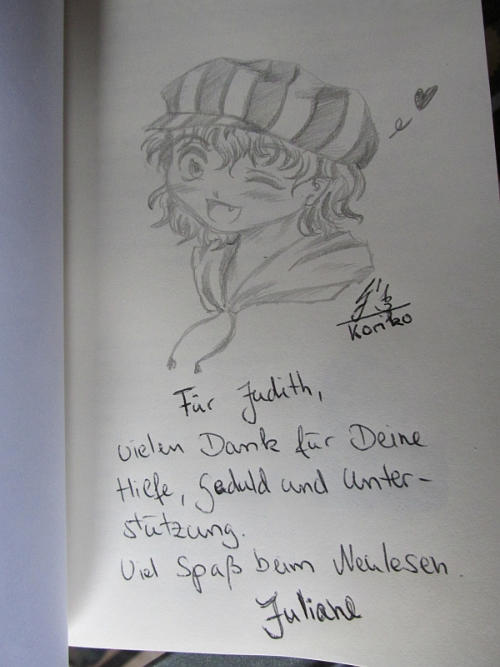 Koriko
Für Judith,
vielen Dank für Deine
Hilfe, Geduld und Unter-
stützung.
Viel Spaß beim Neulesen.
Juliane